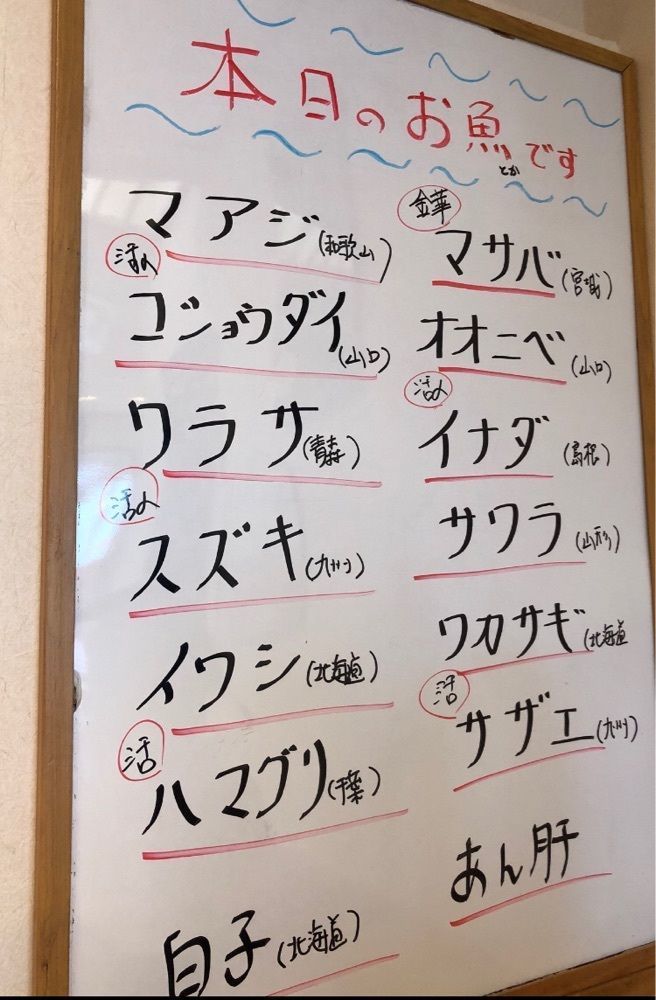 本日のお魚とかです
マアジ(和歌山)
活〆
ゴショウダイ(山口)
ワラサ(青森)
活〆
スズキ(九州)
イワシ(北海道)
活
ハマグリ(千葉)
白子(北海道)
金華
マサバ(宮城)
オオニベ(山口)
活〆
イナダ(島根)
サワラ(山形)
ワカサギ(北海道
活
サザエ(九州)
あん肝